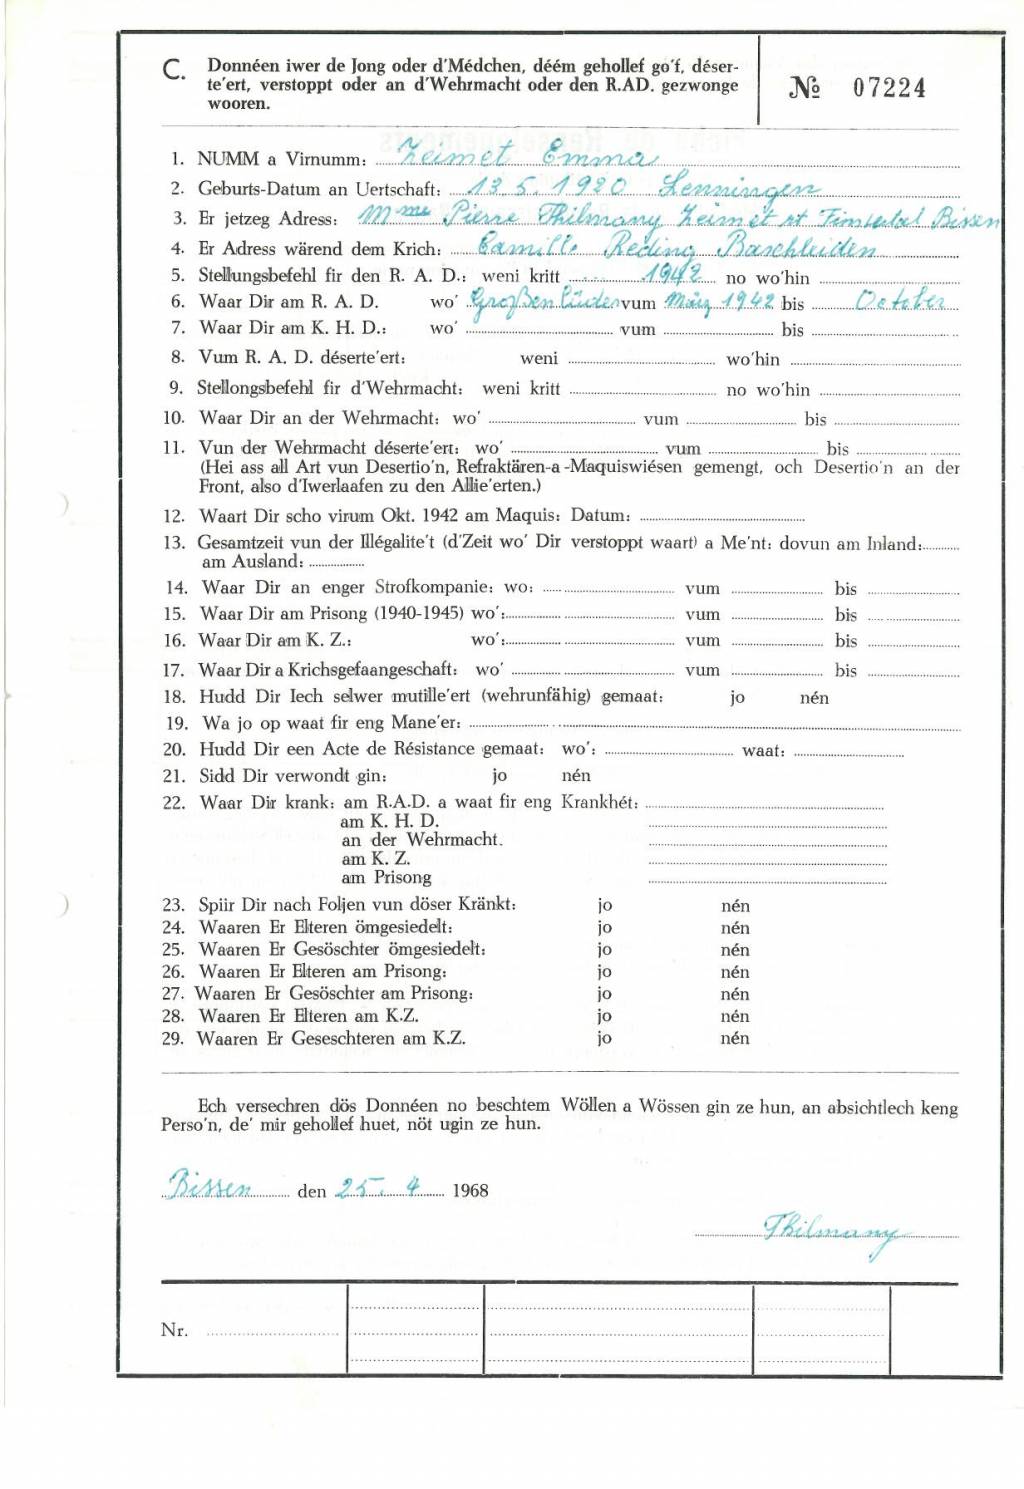 C. Donnéen iwer de Jong oder d'Médchen, déém gehollef go'f, déser-
te'ert, verstoppt oder an d'Wehrmacht oder den R.AD. gezwonge
wooren.
№ 07224
1. NUMM a Virnumm: Zeimet Emma
2. Geburts-Datum an Uertschaft: 13.5.1920 Lenningen
3. Er jetzeg Adress: Mme Pierre Thilmany Zeimet rt Finsterlal Bissen
4. Er Adress wärend dem Krich: Camille Reding Baschleiden
5. Stellungsbefehl fir den R. A. D.: weni kritt 1942 no wo'hin
6. Waar Dir am R. A. D. wo' Großenlüder vum März 1942 bis October
7. Waar Dir am K. H. D.: wo' vum bis
8. Vum R. A. D. déserte'ert: weni wo'hin
9. Stellongsbefehl fir d'Wehrmacht: weni kritt no wo'hin
10. Waar Dir an der Wehrmacht: wo' vum bis
11. Vun der Wehrmacht déserte'ert: wo' vum bis
(Hei ass all Art vun Desertio'n, Refraktären-a -Maquiswiésen gemengt, och Desertio'n an der
Front, also d'Iwerlaafen zu den Allie'erten.)
12. Waart Dir scho virum Okt. 1942 am Maquis: Datum:
13. Gesamtzeit vun der Illégalite't (d'Zeit wo' Dir verstoppt waart) a Me'nt: dovun am Inland:
am Ausland:
14. Waar Dir an enger Strofkompanie: wo: vum bis
15. Waar Dir am Prisong (1940-1945) wo': vum bis
16. Waar Dir am K. Z.: wo': vum bis
17. Waar Dir a Krichsgefaangeschaft: wo' vum bis
18. Hudd Dir Iech selwer mutille'ert (wehrunfähig) gemaat: jo nén
19. Wa jo op waat fir eng Mane'er:
20. Hudd Dir een Acte de Résistance gemaat: wo': waat:
21. Sidd Dir verwondt gin: jo nén
22. Waar Dir krank: am R.A.D. a waat fir eng Krankhét:
am K. H. D.
an der Wehrmacht.
am K. Z.
am Prisong
23. Spiir Dir nach Foljen vun döser Kränkt: jo nén
24. Waaren Er Elteren ömgesiedelt: jo nén
25. Waaren Er Gesöschter ömgesiedelt: jo nén
26. Waaren Er Elteren am Prisong: jo nén
27. Waaren Er Gesöschter am Prisong: jo nén
28. Waaren Er Elteren am K.Z. jo nén
29. Waaren Er Geseschteren am K.Z. jo nén
Ech versechren dös Donnéen no beschtem Wöllen a Wössen gin ze hun, an absichtlech keng
Perso'n, de' mir gehollef huet, nöt ugin ze hun.
Bissen den 25. 4 1968
Thilmany
Nr.